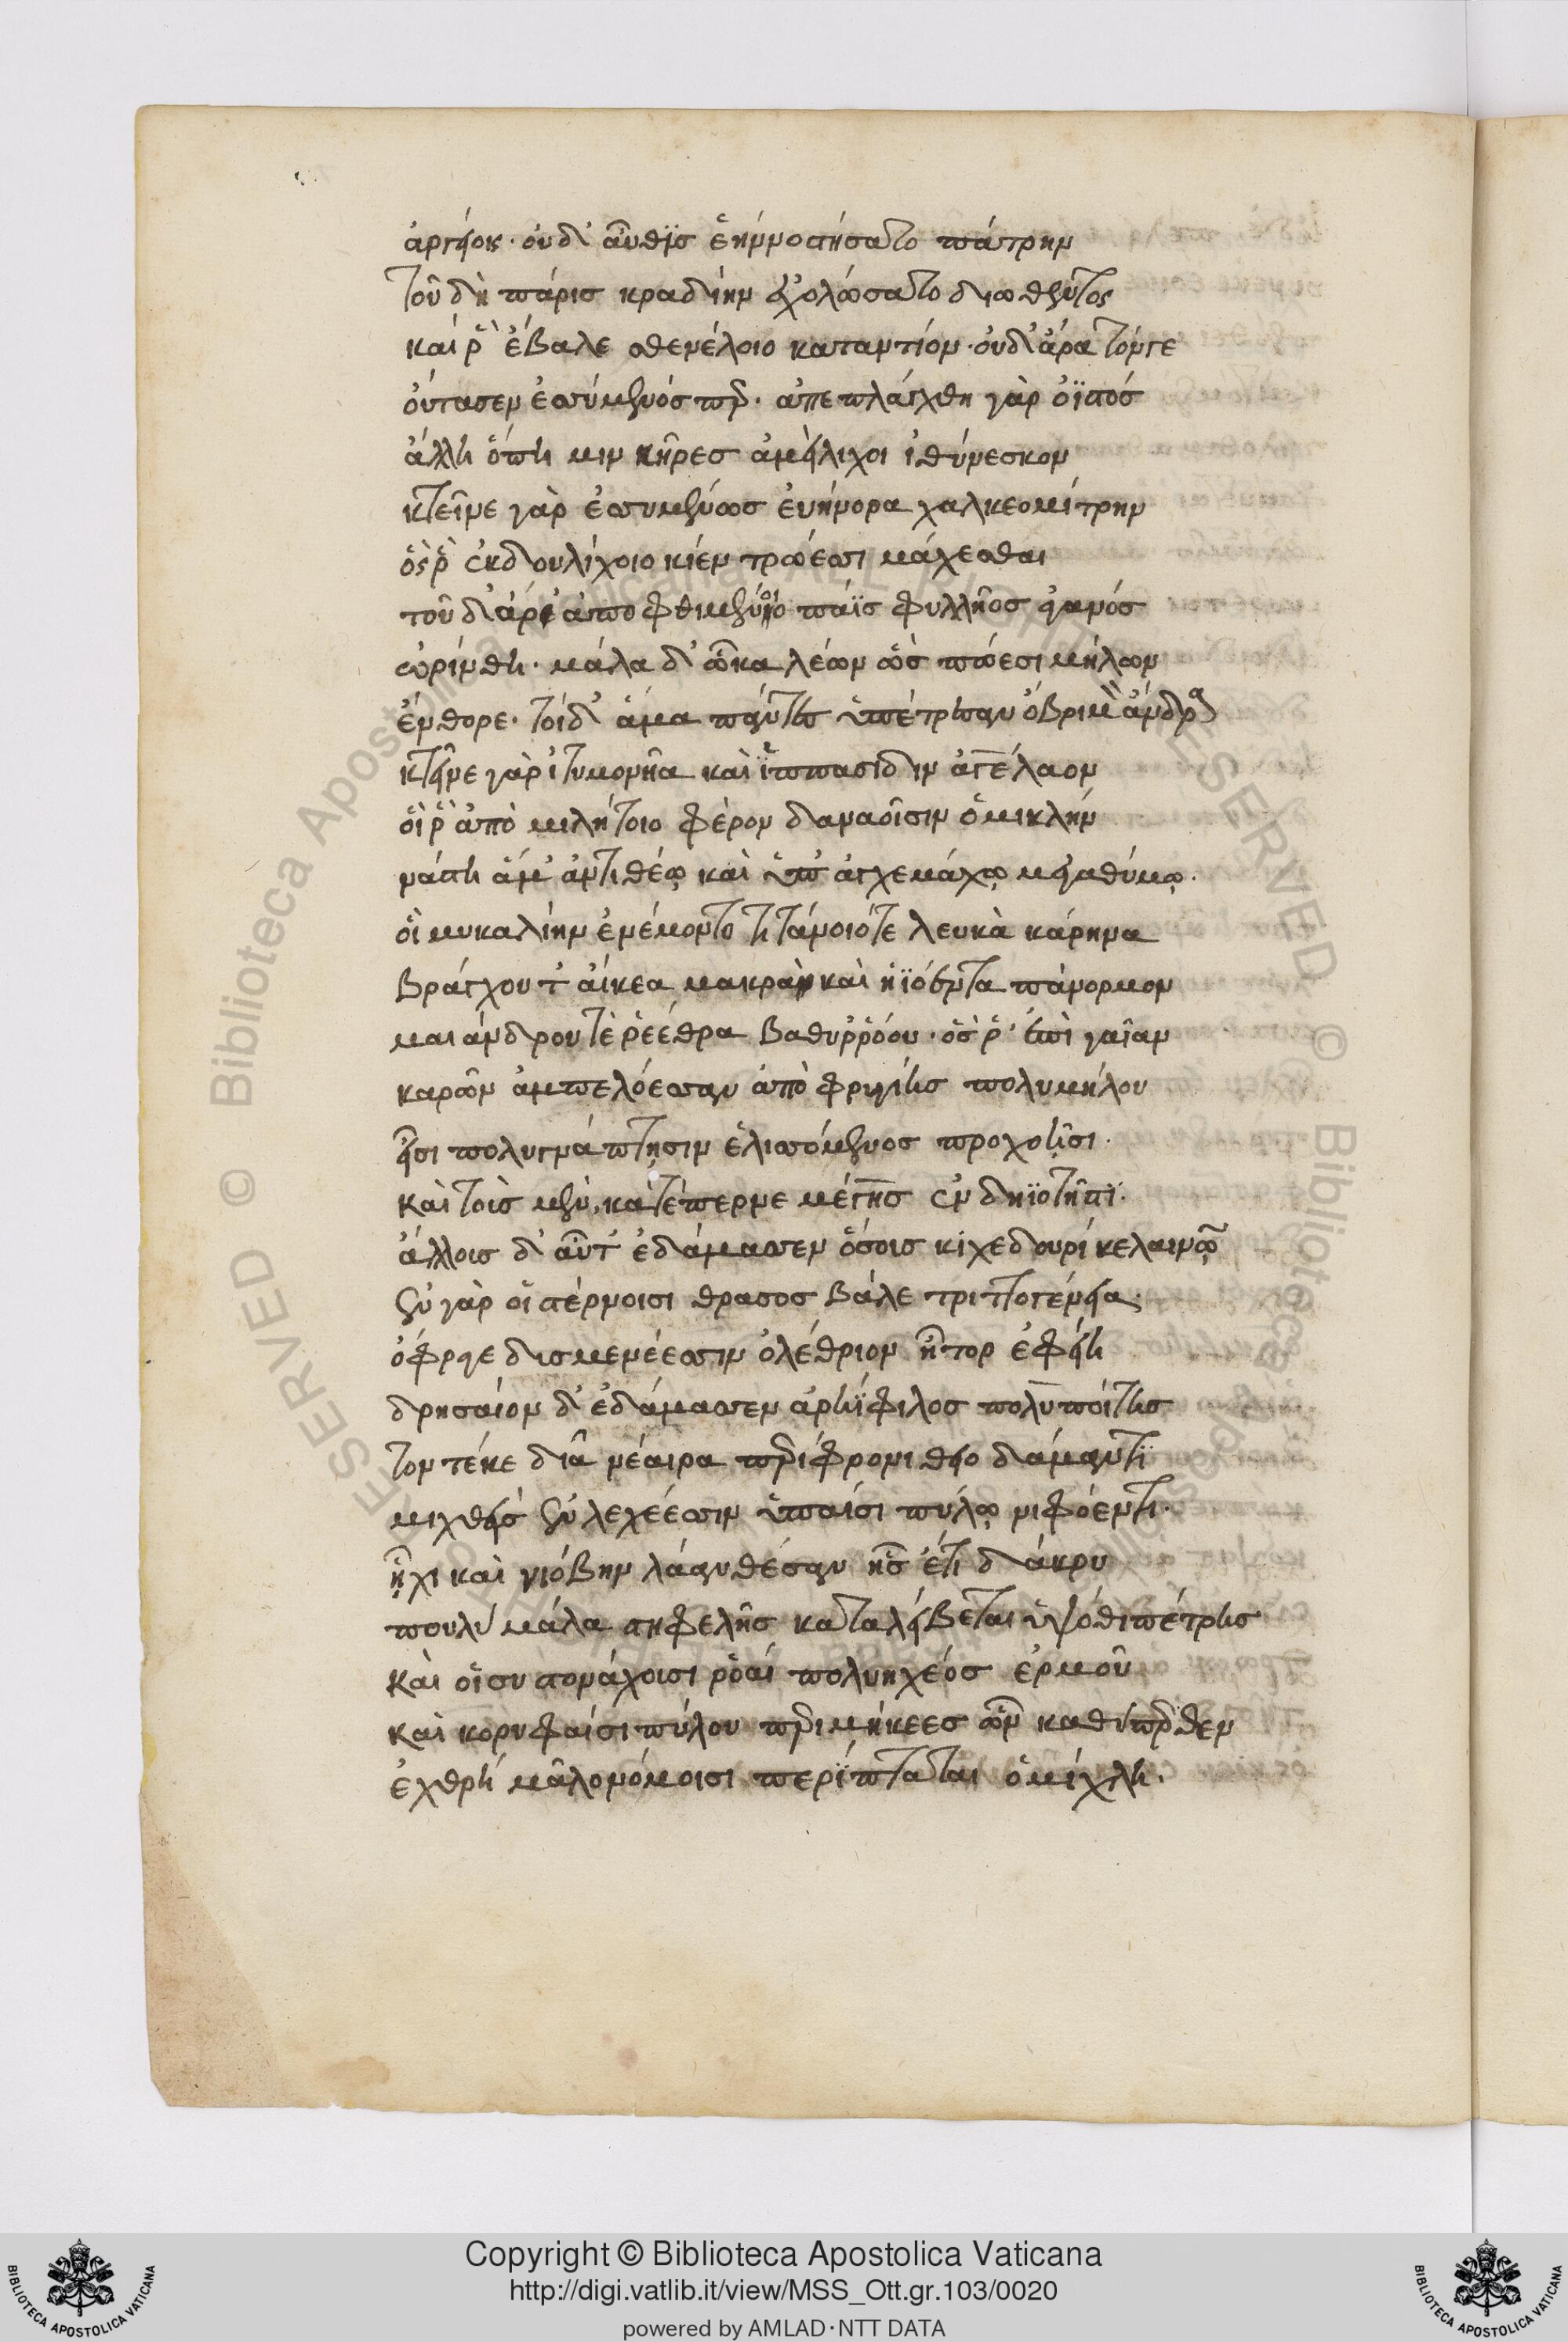 ἀργείοις· οὐδ' αὖθϊς ἑὴν νοστήσατο πάτρην
τοῦ δὴ πάρις κραδίην ἐχολώσατο διωθέντος
καί ῥ' ἔβαλε σθενέλοιο καταντίον· οὐδ' ἄρα τόνγε
οὔτασεν ἐσσύμενός περ· ἀπεπλάγχθη γὰρ ὀϊστός
ἄλλη ὅπη μιν κῆρες ἀμείλιχοι ἰθύνεσκον
κτεῖνε γὰρ ἐσσυμένως εὐήνορα χαλκεομίτρην
ὅς ῥ' ἐκ δουλίχοιο κίεν τρώεσσι μάχεσθαι
τοῦ δ' ἄρ' ἀποφθιμένοιο πάϊς φυλλῆος ἀγανός
ὠρίνθη· μάλα δ' ὦκα λέων ὣς πώεσι μήλων
ἔνθορε· τοὶ δ' ἅμα πάντες ὑπέτρεσαν ὄβριμον ἄνδρα
κτεῖνε γὰρ ἰτυμονῆα καὶ ἵππασίδην ἀγέλαον
οἵ ῥ' ἀπὸ μιλήτοιο φέρον δαναοῖσιν ὁμικλήν
νάστη ἅμ' ἀντιθέῳ καὶ ὑπ' ἀγχεμάχῳ μεγαθύμῳ·
οἳ μυκαλίην ἐνέμοντο τιτάνοιό τε λευκὰ κάρηνα
βράγχου τ' αἴκεα μακρὰ καὶ ἠϊόεντα πάνορμον
μαιάνδρου τε ῥέεθρα βαθυῤῥόου· ὅς ῥ' ἐπὶ γαῖαν
καρῶν ἀμπελόεσσαν ἀπὸ φρυγίης πολυμήλου
εἶσι πολυγνάπτῃσιν ἑλισσόμενος προχοῇσι·
καὶ τοὶς μὲν, κατέπερνε μέγης ἐν δηϊοτῆτϊ·
ἄλλοις δ' αὖτ' ἐδάμασσεν ὅσοις κίχε δουρί κελαινῷ
ἐν γὰρ οἱ στέρνοισι θρασος βάλε τριττογένεια·
ὄφρα γε δισμενέεσσιν ὀλέθριον ἦτορ ἐφείη
δρησαίον δ' ἐδάμασσεν ἀρηΐφιλος πολυποίτης
τον τέκε δῖα νέαιρα περίφρονι θειοδάμαντϊ
μιχθεῖσ' ἐν λεχέεσσιν ὑπαίσι πύλῳ νιφόεντι·
ᾗχι καὶ νιόβην λάαν θέσαν ἧς ἔτι δάκρυ
πουλὺ μάλα στηφελῆς καταλείβεται ὑψόθι πέτρης
καὶ οἳ συστονάχοισι ῥοαί πολυηχέος ἑρμοῦ
καὶ κορυφαίσι πύλου περιμήκεες ὧν καθύπερθεν
ἐχθρή μᾶλονόμοισι περϊπταται ὁμίχλη.
Copyright © Biblioteca Apostolica Vaticana
http://digi.vatlib.it/view/MSS_Ott.gr.103/0020
powered by AMLAD·NTT DATA